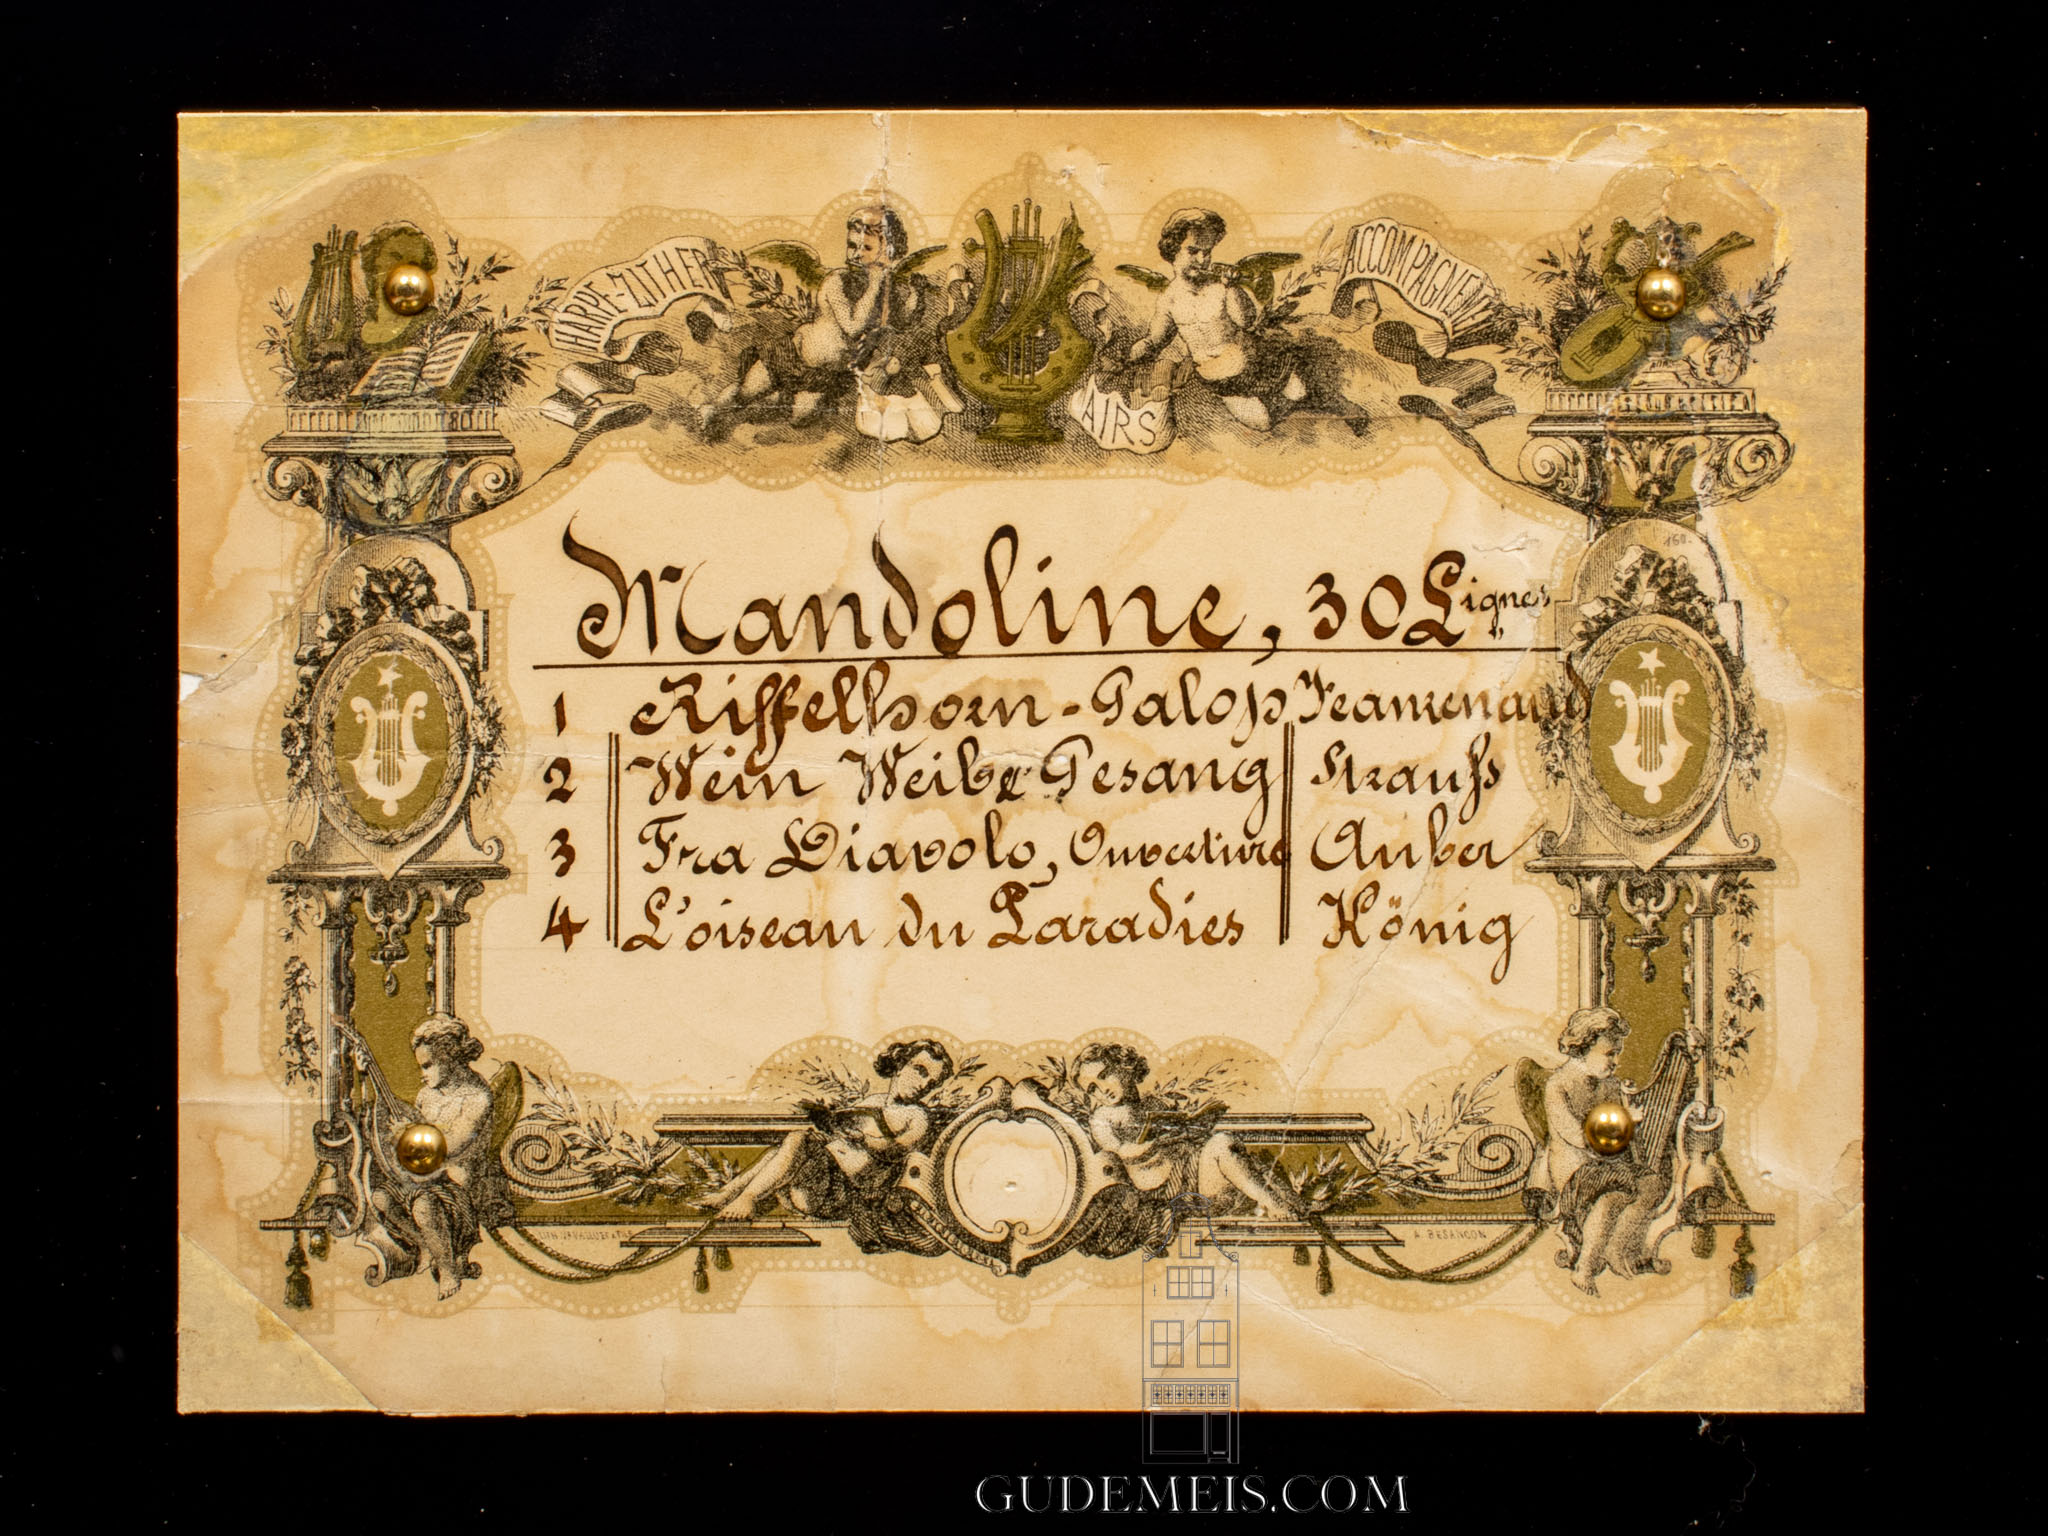 HARPE-ZITHER
ACCOMPAGNEMT
AIRS
160.
Mandoline, 30 Lignes
1 Riffelhorn-Galop Jeanrenaud
2 Wein Weib & Gesang Strauss
3 Fra Diavolo, Ouverture Auber
4 L'oiseau du Paradies König
A. BESANCON
GUDEMEIS.COM